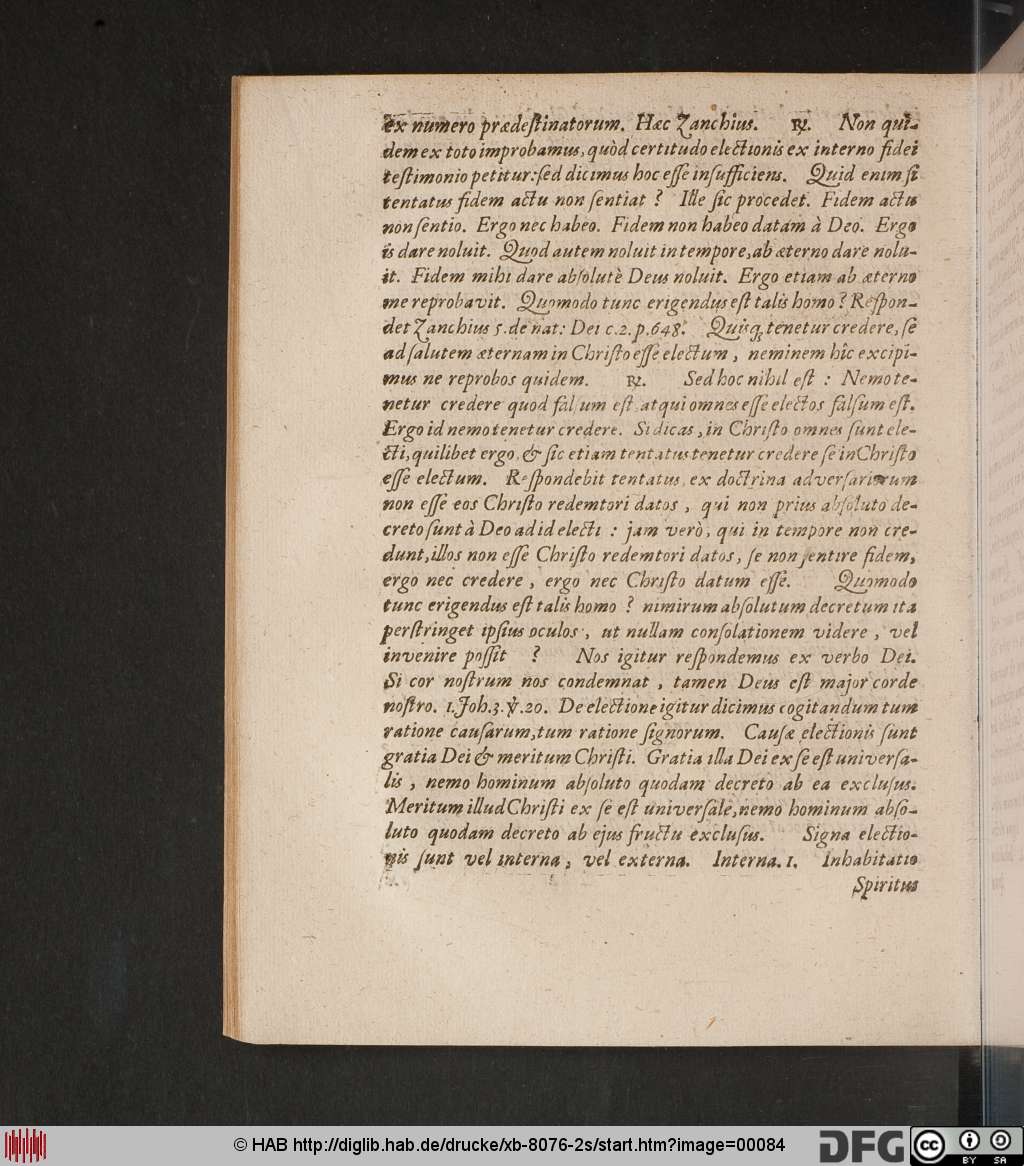 ex numero prædeſtinatorum. Hæc Zanchius. ℞. Non qui-
dem ex toto improbamus, quòd certitudo electionis ex interno fidei
teſtimonio petitur: ſed dicimus hoc eſſe inſufficiens. Quid enim ſi
tentatus fidem actu non ſentiat? Ille ſic procedet. Fidem actu
non ſentio. Ergo nec habeo. Fidem non habeo datam à Deo. Ergo
is dare noluit. Quod autem noluit in tempore, ab æterno dare nolu-
it. Fidem mihi dare abſolutè Deus noluit. Ergo etiam ab æterno
me reprobavit. Quomodo tunc erigendus eſt talis homo? Reſpon-
det Zanchius 5. de nat: Dei c. 2. p. 648. Quisq; tenetur credere, ſe
ad ſalutem æternam in Chriſto eſſe electum, neminem hîc excipi-
mus ne reprobos quidem. ℞. Sed hoc nihil eſt: Nemo te-
netur credere quod falſum eſt atqui omnes eſſe electos falſum eſt.
Ergo id nemo tenetur credere. Si dicas, in Chriſto omnes ſunt ele-
cti, quilibet ergo, & ſic etiam tentatus tenetur credere ſe in Chriſto
eſſe electum. Reſpondebit tentatus, ex doctrina adverſariorum
non eſſe eos Chriſto redemtori datos, qui non prius abſoluto de-
creto ſunt à Deo ad id electi: jam verò, qui in tempore non cre-
dunt, illos non eſſe Chriſto redemtori datos, ſe non ſentire fidem,
ergo nec credere, ergo nec Chriſto datum eſſe. Quomodo
tunc erigendus eſt talis homo? nimirum abſolutum decretum ita
perſtringet ipſius oculos, ut nullam conſolationem videre, vel
invenire poſſit? Nos igitur reſpondemus ex verbo Dei.
Si cor noſtrum nos condemnat, tamen Deus eſt major corde
noſtro. 1. Joh. 3. ℣. 20. De electione igitur dicimus cogitandum tum
ratione cauſarum, tum ratione ſignorum. Cauſæ electionis ſunt
gratia Dei & meritum Chriſti. Gratia illa Dei ex ſe eſt univerſa-
lis, nemo hominum abſoluto quodam decreto ab ea excluſus.
Meritum illud Chriſti ex ſe eſt univerſale, nemo hominum abſo-
luto quodam decreto ab ejus fructu excluſus. Signa electio-
nis ſunt vel interna, vel externa. Interna. 1. Inhabitatio
Spiritus
© HAB http://diglib.hab.de/drucke/xb-8076-2s/start.htm?image=00084
DFG
cc BY SA